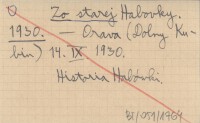 Zo starej Habovky.
1930. — Orava (Dolný Ku-
bín) 14. IX. 1930.
Historia Habovki.